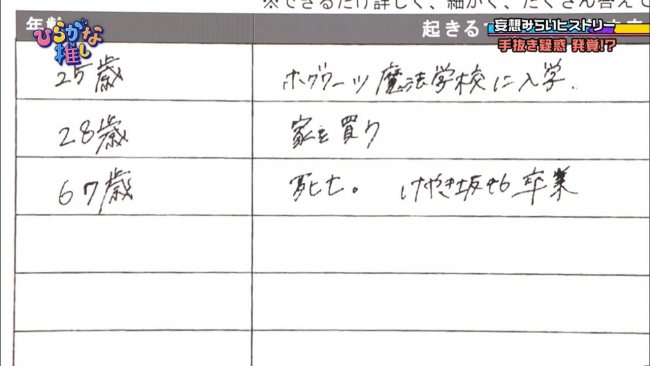 ※できるだけ詳しく、細かく、たくさん答えて
年齢
起きる
ひらがな推し
妄想みらいヒストリー
手抜き疑惑 発覚!?
25歳 ホグワーツ魔法学校に入学.
28歳 家を買う
67歳 死亡。 けやき坂46卒業